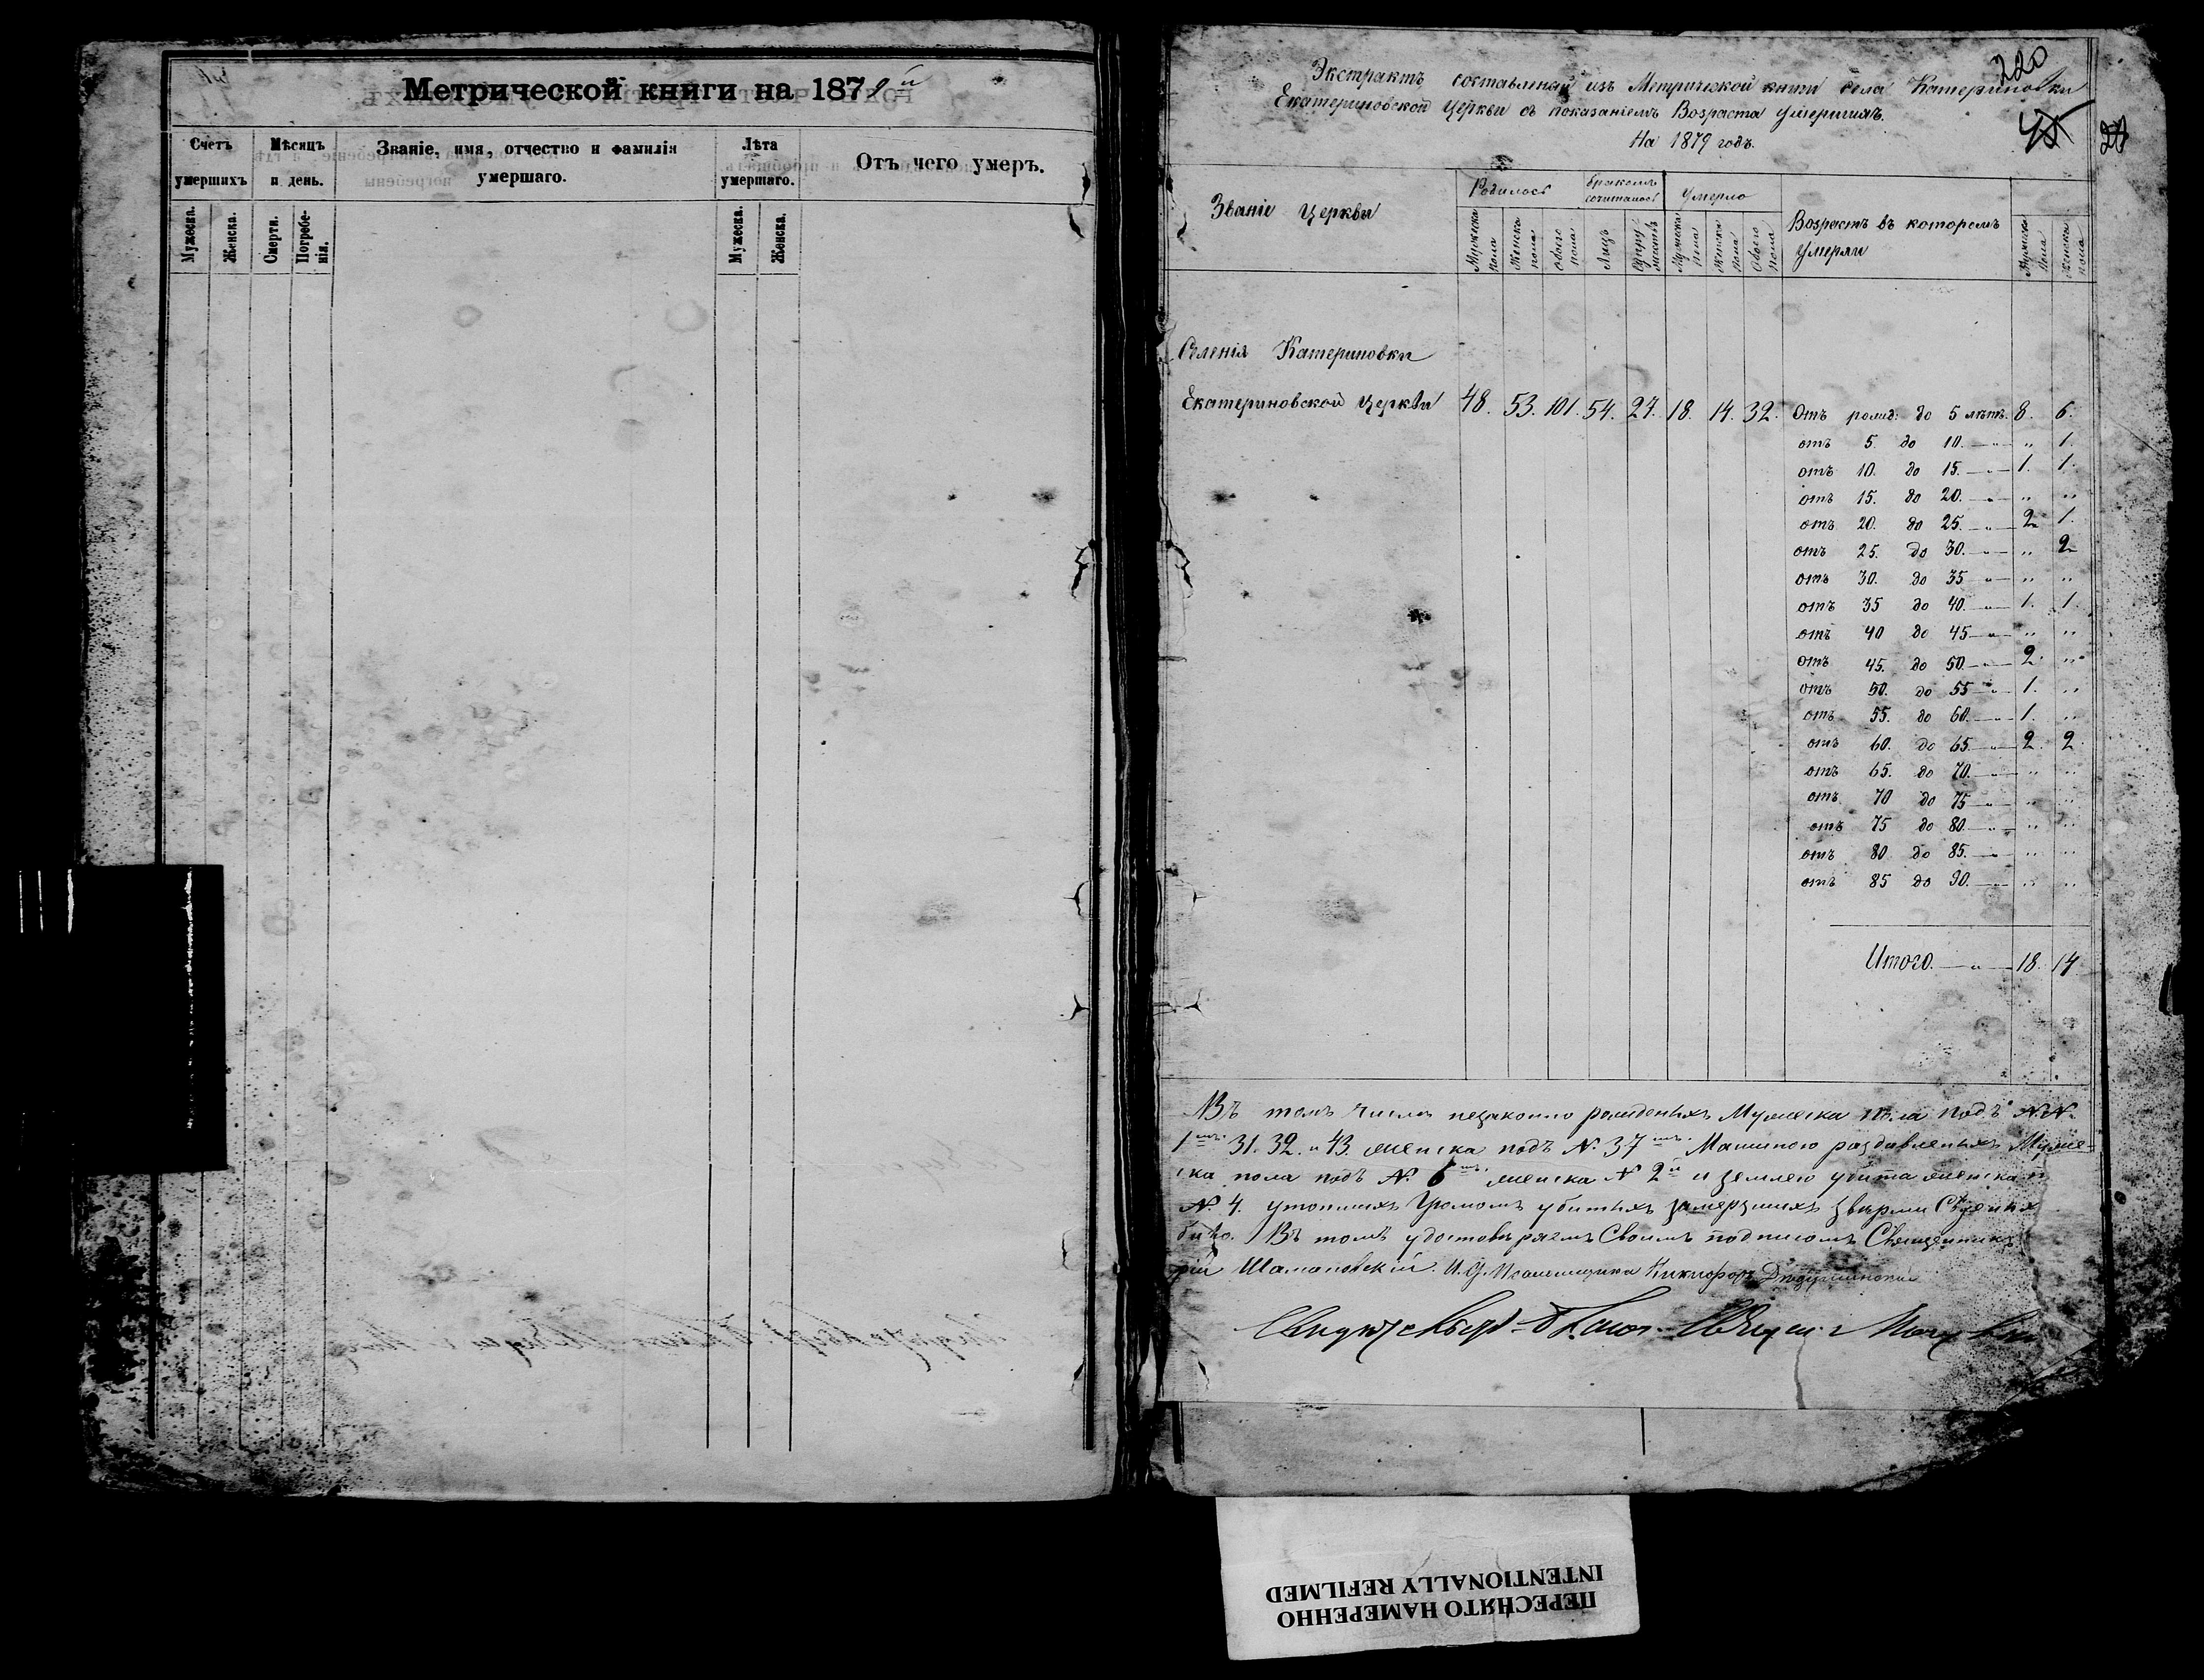 Метрической книги на 1879й
Счетъ умершихъ
Мѣсяцъ и день.
Званіе, имя, отчество и фамилія умершаго.
Лѣта умершаго.
Отъ чего умеръ.
Мужеска.
Женска.
Смерти.
Погребенія.
Мужеска.
Женска.
220
Экстрактъ составленный изъ Метрической книги села Катериновки
Екатериновской Церкви съ показаніемъ Возраста Умершихъ.
На 1879 годъ.
Званіе Церкви
Родилось
бракомъ сочиталось
Умерло
Возрастъ въ которомъ Умерли
Мужска пола
Женска пола
Обоего пола
Лицъ
Мужска пола
Женска пола
Обоего пола
Мужска пола
Женска пола
Селенія Катериновки
Екатериновской Церкви 48. 53. 101. 54. 27. 18. 14. 32. Отъ рожд: до 5 лѣтъ. 8. 6.
отъ 5. до 10. — „ — „ 1.
отъ 10. до 15. — „ — 1. 1.
отъ 15. до 20. — „ — „ „
отъ 20. до 25. — „ — 2 1.
отъ 25. до 30. — „ — „ 2
отъ 30. до 35 — „ — „ „
отъ 35 до 40. — „ — 1. 1.
отъ 40 до 45 — „ — „ „
отъ 45. до 50. — „ — 2. „
отъ 50. до 55 — „ — 1. „
отъ 55. до 60. — „ — 1. „
отъ 60. до 65. — „ — 2. 2.
отъ 65. до 70. — „ — „ „
отъ 70 до 75 — „ — „ „
отъ 75 до 80. — „ — „ „
отъ 80 до 85. — „ — „ „
отъ 85 до 90. — „ — „ „
Итого. — „ — 18. 14
Въ томъ числѣ незаконно рожденыхъ Мужеска пола подъ №№.
31. 32. и 43. женска подъ №. 37 Машиною раздавленыхъ Муже-
ска пола подъ №. 6 женска № 2й и землею убита женска п
№. 4. утопшихъ Громомъ убитыхъ замерзшихъ звѣрми
было. Въ томъ удостовѣряемъ Своимъ подписомъ Священникъ
Шамановскій. И. Д. Псаломщика Никифоръ
ПЕРЕСНЯТО НАМЕРЕННО
INTENTIONALLY REFILMED